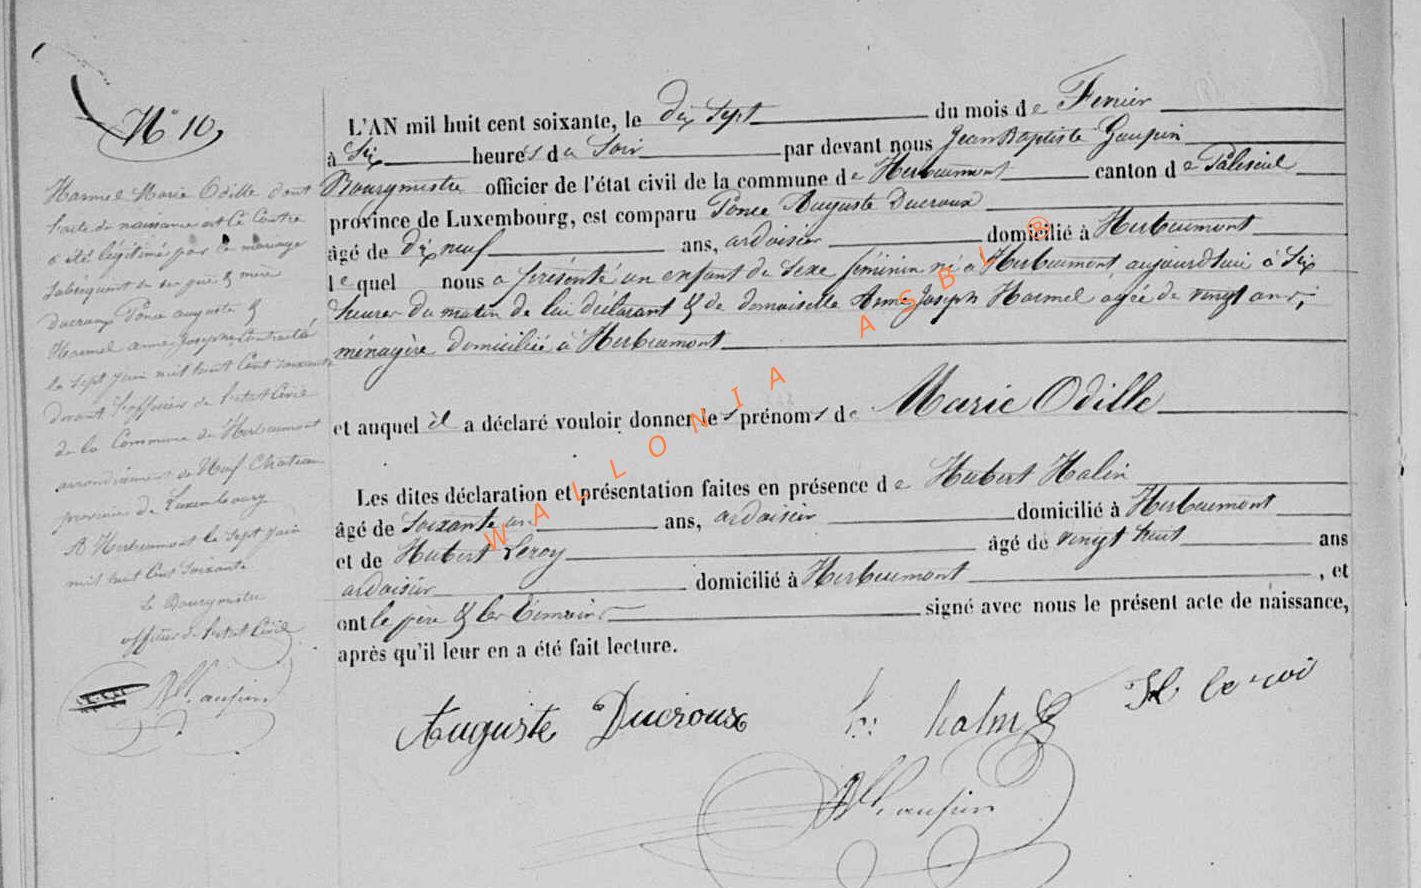 N° 10,
Harmel Marie Odille dont
l'acte de naissance est ci contre
a été légitimée par le mariage
subséquent de ses père & mère
Ducroux Ponce auguste &
Harmel anne Joseph contracté
le sept Juin mil huit Cent soixante
devant l'officier de l'état Civil
de la Commune de Herbeumont
arrondissement de Neufchateau
province de Luxembourg
A Herbeumont le sept Juin
mil huit Cent Soixante
Le Bourgmestre
officier de l'état Civil
L'AN mil huit cent soixante, le dix sept du mois de Fevrier
à Six heures du Soir par devant nous Jean Baptiste Gaupin
Bourgmestre officier de l'état civil de la commune de Herbeumont canton de Paliseul
province de Luxembourg, est comparu Ponce Auguste Ducroux
âgé de dix neuf ans, ardoisier domicilié à Herbeumont
lequel nous a présenté un enfant de sexe féminin né à Herbeumont aujourd'hui à Six
heures du matin de lui déclarant & de demoiselle Anne Joseph Harmel agée de vingt ans,
ménagère domiciliée à Herbeumont
et auquel il a déclaré vouloir donner les prénoms de Marie Odille
Les dites déclaration et présentation faites en présence de Hubert Halin
âgé de soixante ans, ardoisier domicilié à Herbeumont
et de Hubert Leroy âgé de vingt huit ans
ardoisier domicilié à Herbeumont, et
ont le père & les témoins signé avec nous le présent acte de naissance,
après qu'il leur en a été fait lecture.
Auguste Ducroux h: halin H le roi
WALLONIA ASBL ®